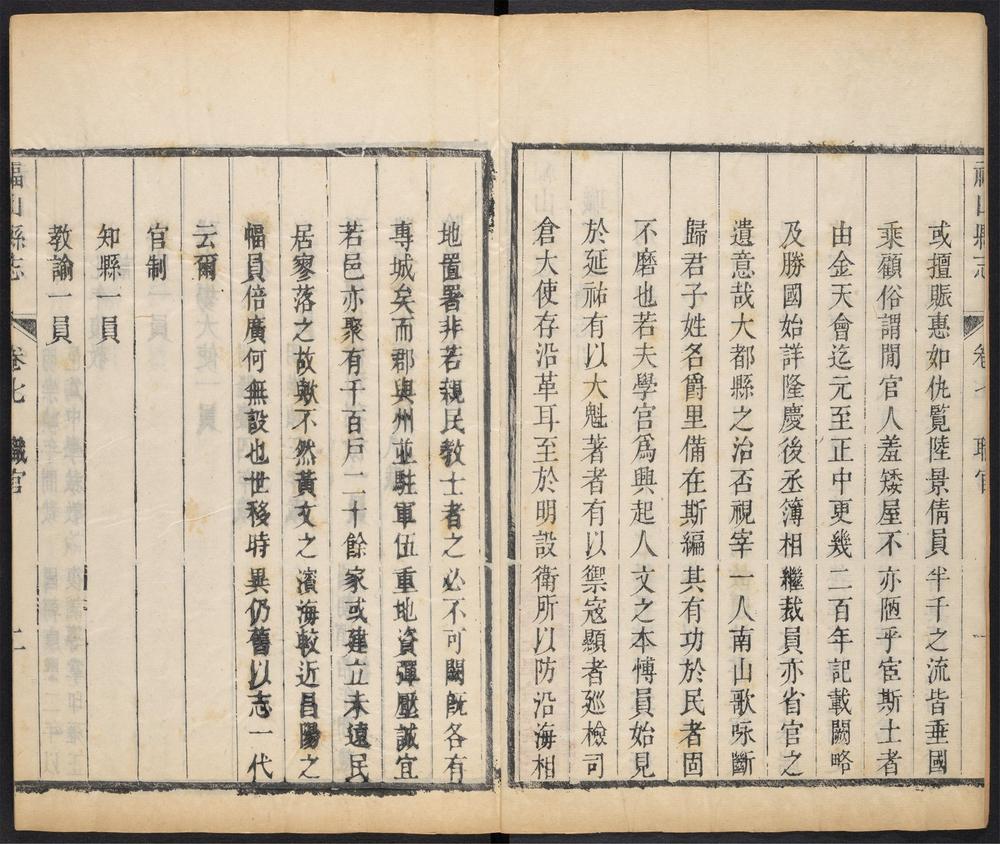 福山縣志
卷七
職官
一
或擅賑惠如仇覧陸景倩員半千之流皆垂國
乘顧俗謂閒官人羞矮屋不亦陋乎宦斯土者
由金天會迄元至正中更幾二百年記載闕略
及勝國始詳隆慶後丞簿相繼裁員亦省官之
遺意哉大都縣之治否視宰一人南山歌咏斷
歸君子姓名爵里備在斯編其有功於民者固
不磨也若夫學官爲興起人文之本愽員始見
於延祐有以大魁著者有以禦寇顯者廵檢司
倉大使存沿革耳至於明設衛所以防沿海相
地置署非若親民敎士者之必不可闕旣各有
專城矣而郡與州並駐軍伍重地資彈壓誠宜
若邑亦聚有千百戶二十餘家或建立未遠民
居寥落之故歟不然黃文之濱海較近昌陽之
幅員倍廣何無設也世移時異仍舊以志一代
云爾
官制
知縣一員
敎諭一員
福山縣志
卷七
職官
二